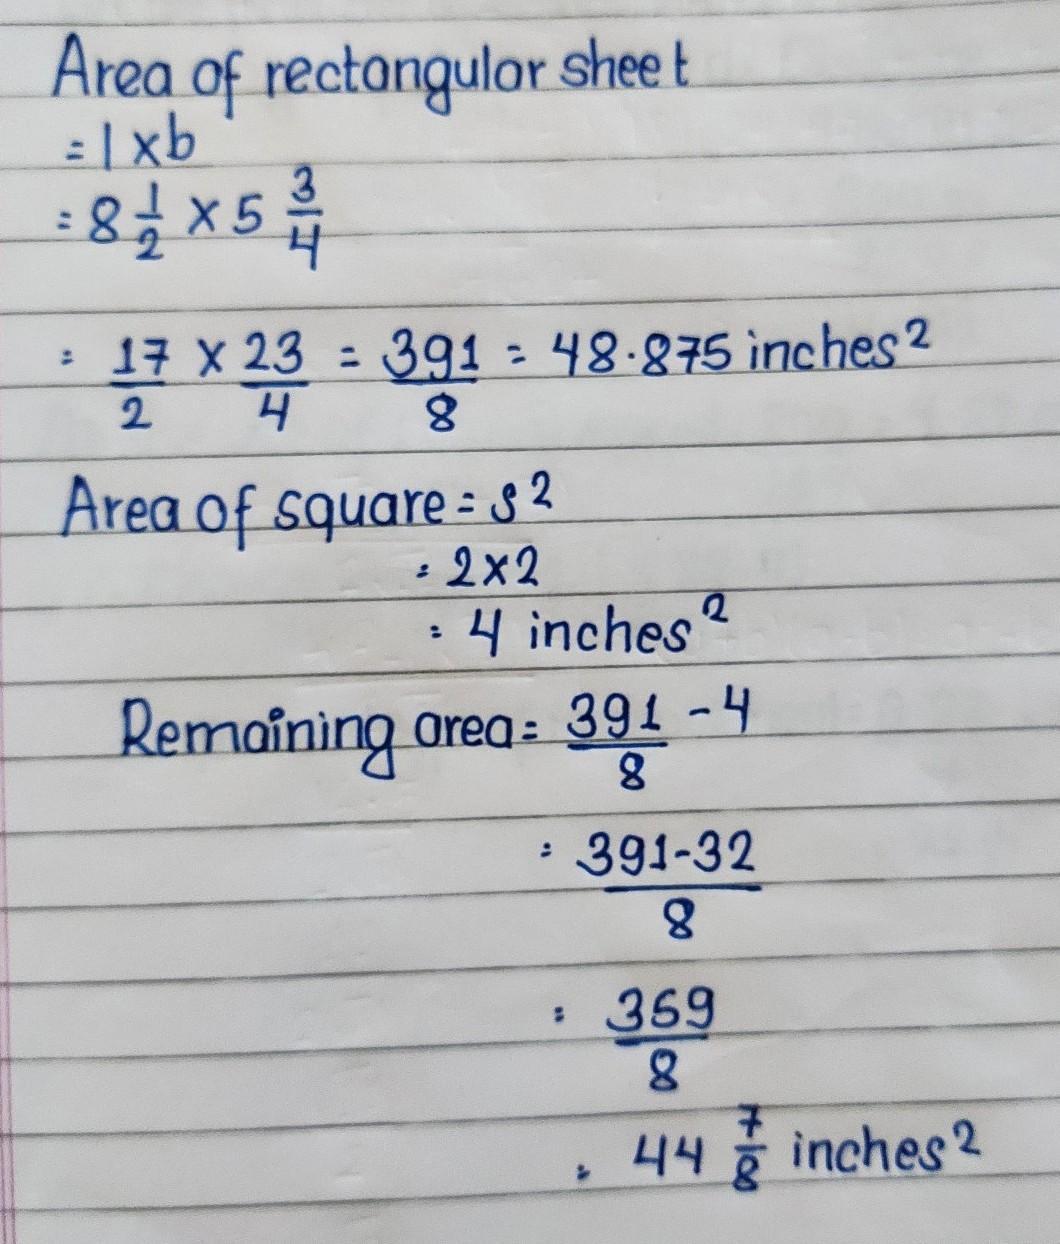 Area of rectangular sheet
= l × b
= 8 1/2 × 5 3/4
= 17/2 × 23/4 = 391/8 = 48.875 inches²
Area of square = s²
= 2×2
= 4 inches²
Remaining area = 391/8 - 4
= 391-32/8
= 359/8
= 44 7/8 inches²